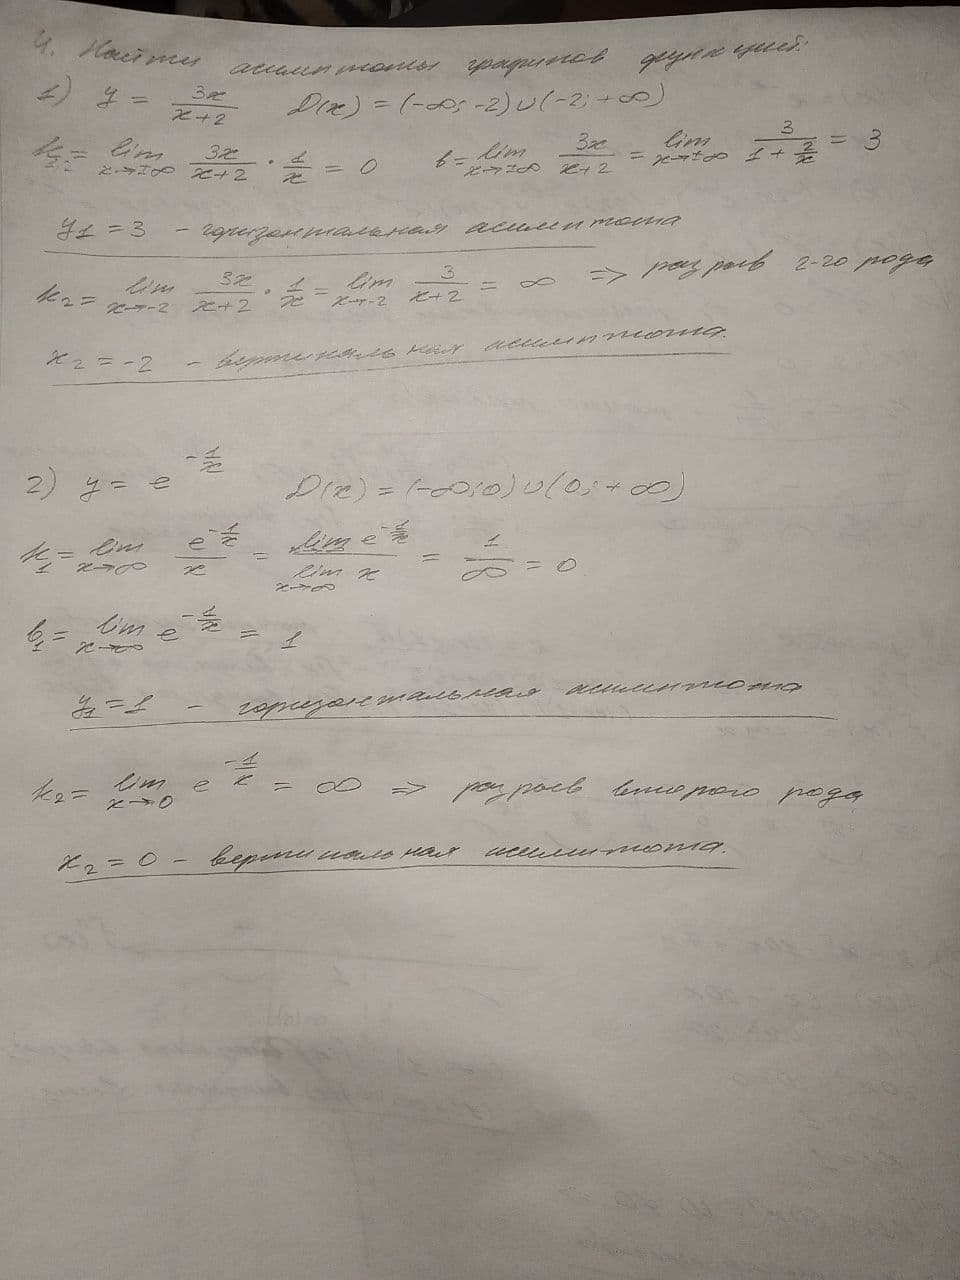 4. Найти асимптоты графиков функций:
1) y = 3x/(x+2) D(x) = (-∞; -2)∪(-2; +∞)
k₁,₂ = lim x→±∞ 3x/(x+2) · 1/x = 0 b = lim x→±∞ 3x/(x+2) = lim x→±∞ 3/(1 + 2/x) = 3
y₁ = 3 - горизонтальная асимптота
k₂ = lim x→-2 3x/(x+2) · 1/x = lim x→-2 3/(x+2) = ∞ ⇒ разрыв 2-го рода
x₂ = -2 - вертикальная асимптота.
2) y = e^(-1/x) D(x) = (-∞; 0)∪(0; +∞)
k₁ = lim x→∞ e^(-1/x)/x = lim e^(-1/x)/lim x→∞ x = 1/∞ = 0
b₁ = lim x→∞ e^(-1/x) = 1
y₁ = 1 - горизонтальная асимптота
k₂ = lim x→0 e^(-1/x) = ∞ ⇒ разрыв второго рода
x₂ = 0 - вертикальная асимптота.